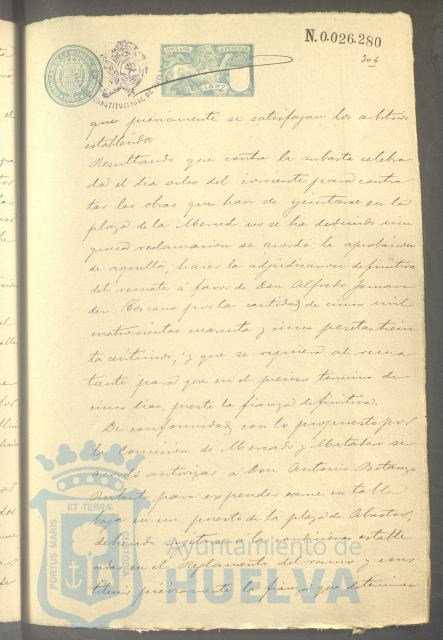 N.0.026.280
204
1897
que previamente se satisfagan los arbitrios
establecidos
Resultando que contra la subasta celebra
da el día ocho del corriente para contra
tar las obras que han de ejecutarse en la
plaza de la Merced no se ha deducido nin
guna reclamacion se acordó la aprobacion
de aquella, hacer la adjudicacion definitiva
del remate á favor de Don Alfredo
por la cantidad de cinco mil
cuatrocientas cuarenta y cinco pesetas trein
ta centimos, y que se requiera al rema
tante para que en el preciso término de
cinco dias, preste la fianza definitiva.
De conformidad con lo propuesto por
la Comision de Mercado y Matadero se
acordó autorizar a Don Antonio
para expender carne en tabla
baja en un puesto de la plaza de Abastos,
debiendo sujetarse a las condiciones estable
cidas en el Reglamento del ramo y cons
tituir previamente la fianza que determina
PORTUS MARIS ET TERRAE CUSTODIA
Ayuntamiento de
HUELVA